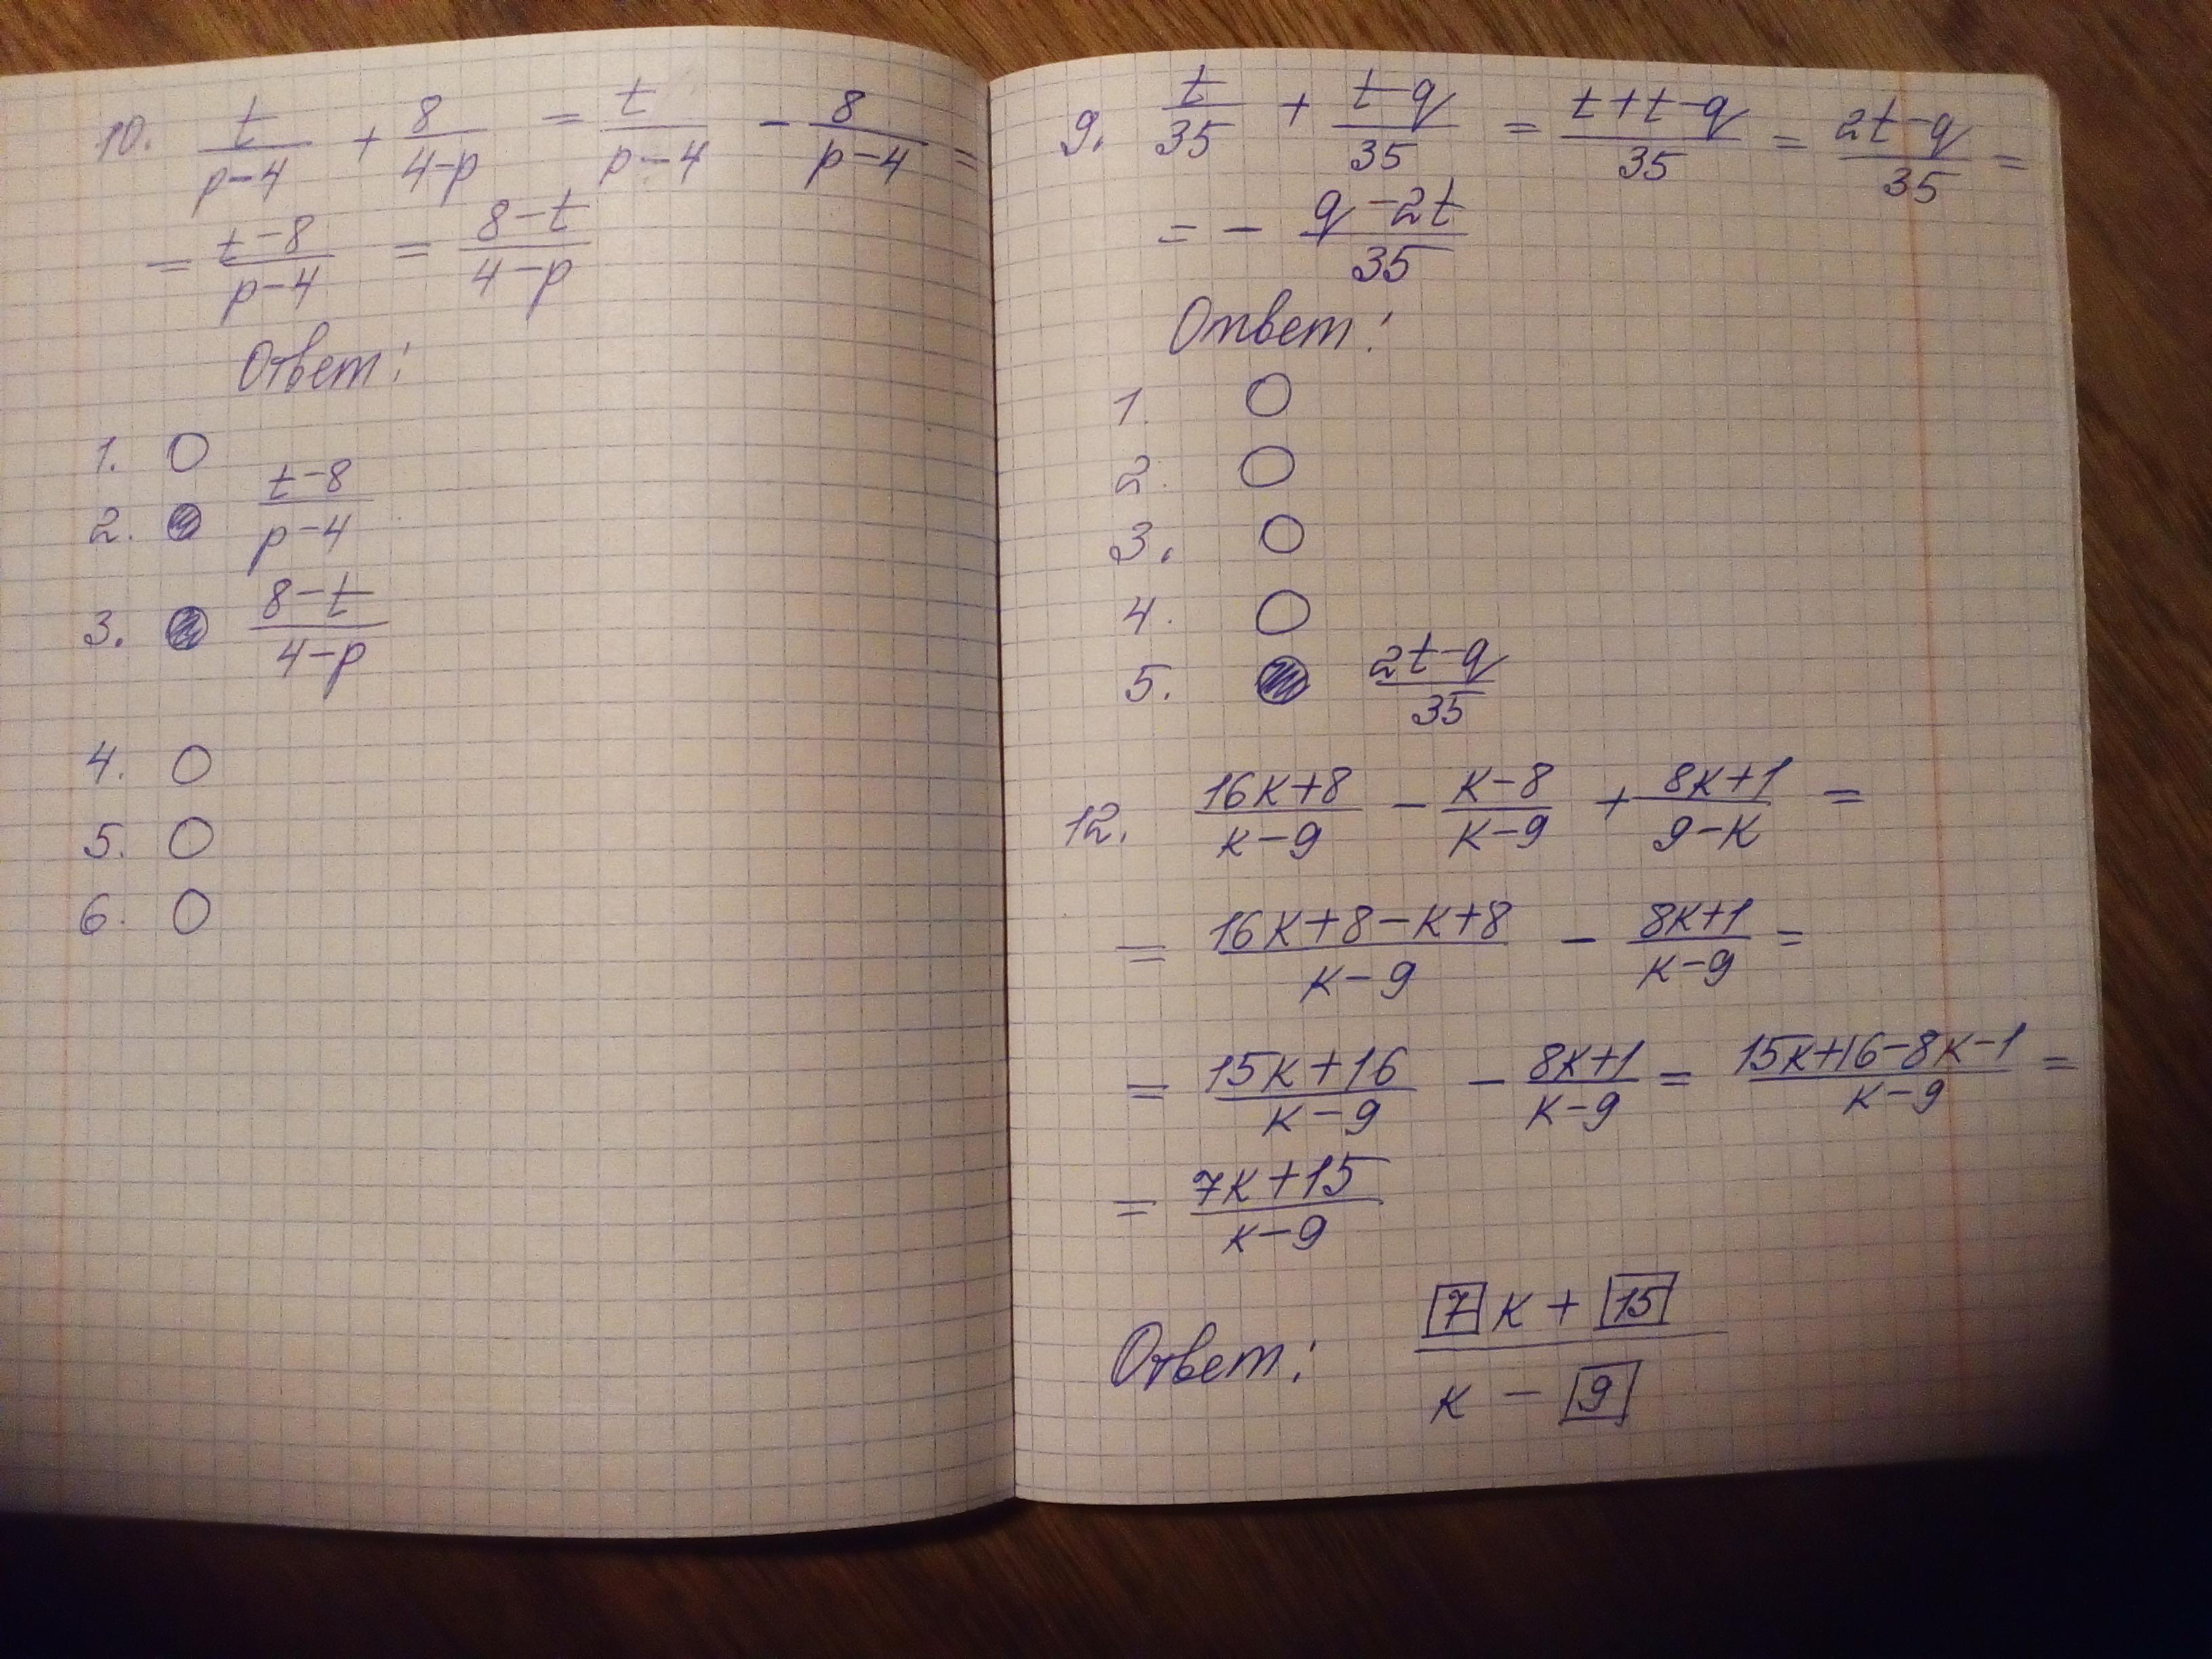 10. t/(p-4) + 8/(4-p) = t/(p-4) - 8/(p-4) =
= (t-8)/(p-4) = (8-t)/(4-p)
Ответ:
1. ○
2. ● (t-8)/(p-4)
3. ● (8-t)/(4-p)
4. ○
5. ○
6. ○
9. t/35 + (t-q)/35 = (t+t-q)/35 = (2t-q)/35 =
= - (q-2t)/35
Ответ:
1. ○
2. ○
3. ○
4. ○
5. ● (2t-q)/35
12. (16к+8)/(к-9) - (к-8)/(к-9) + (8к+1)/(9-к) =
= (16к+8-к+8)/(к-9) - (8к+1)/(к-9) =
= (15к+16)/(к-9) - (8к+1)/(к-9) = (15к+16-8к-1)/(к-9) =
= (7к+15)/(к-9)
Ответ: ([7]к + [15])/(к - [9])